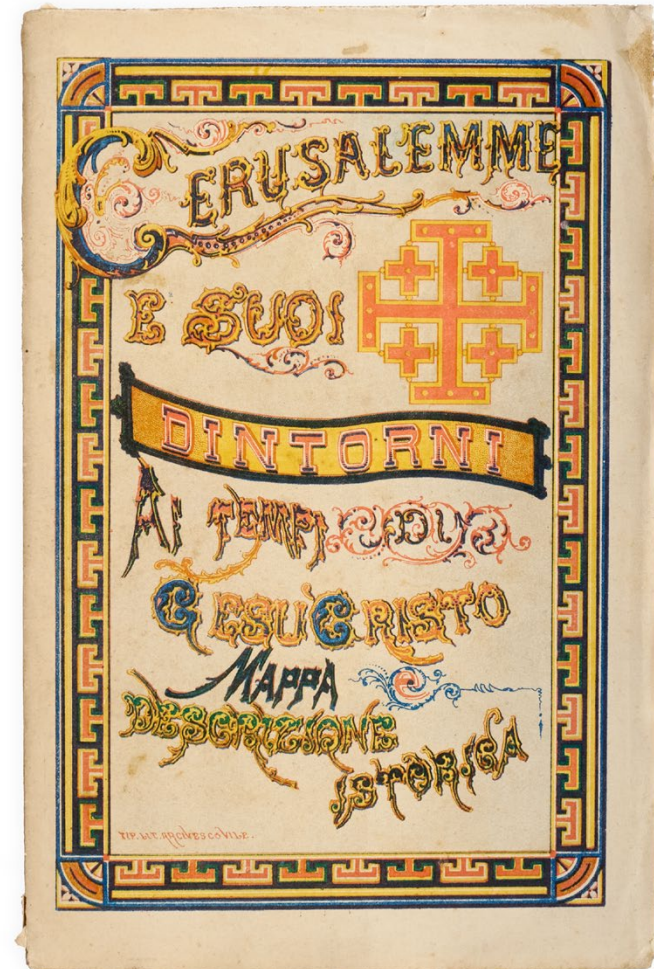 GERUSALEMME
E SUOI
DINTORNI
AI TEMPI DI
GESU' CRISTO
MAPPA
DESCRIZIONE
ISTORICA
TIP. LIT. ARCIVESCOVILE.